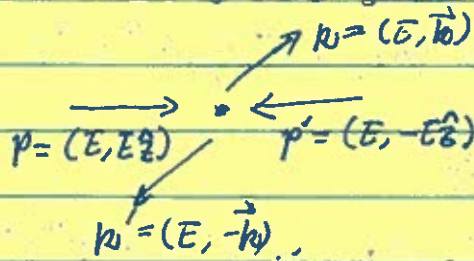 k = (E, \vec{k})
p = (E, E\hat{z})
p' = (E, -E\hat{z})
k' = (E, -\vec{k})